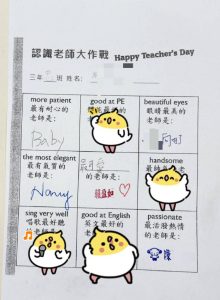 認識老師大作戰 Happy Teacher's Day
三年 班 姓名:
more patient
最有耐心的
老師是:
Baby
good at PE
老師是:
beautiful eyes
眼睛最美的
老師是:
the most elegant
最有氣質的
老師是:
Nanny
最可愛
的老師是:
handsome
老師是:
sing very well
唱歌最好聽
老師是:
good at English
英文最好的
passionate
最活潑熱情
的老師是:
陳